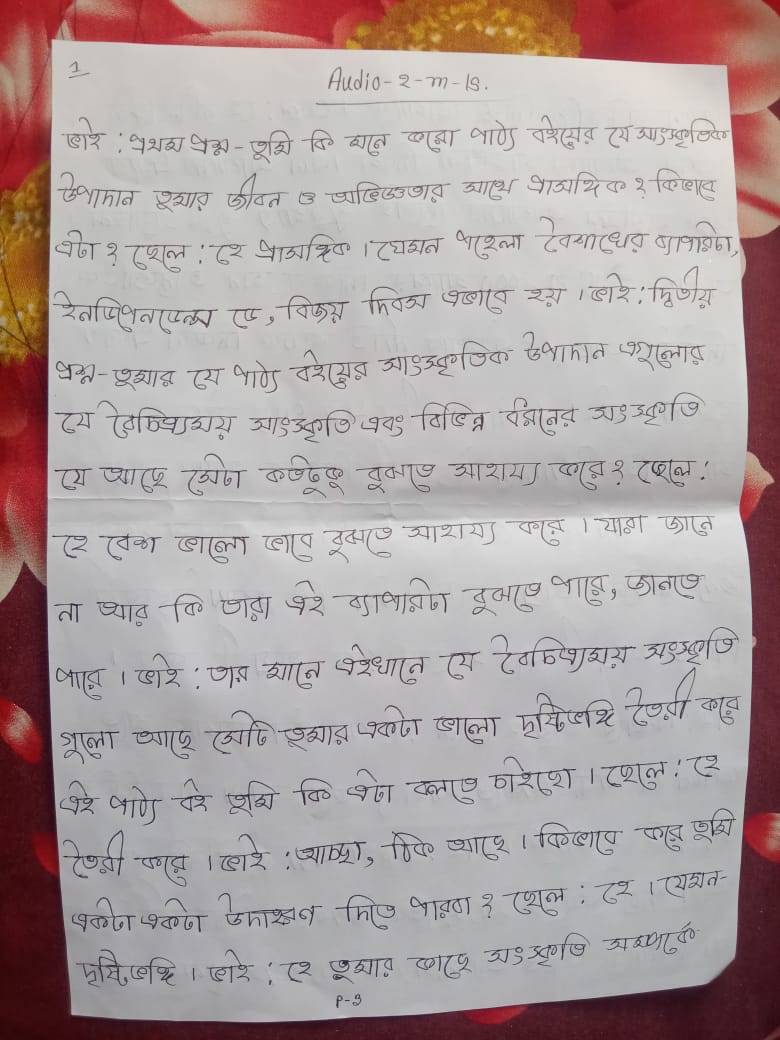 1
Audio-2-m-IS.
ভাই : প্রথম প্রশ্ন - তুমি কি মনে করো পাঠ্য বইয়ের যে সাংস্কৃতিক
উপাদান তুমার জীবন ও অভিজ্ঞতার সাথে প্রাসঙ্গিক ? কিভাবে
এটা ? ছেলে : হে প্রাসঙ্গিক । যেমন পহেলা বৈশাখের ব্যাপারটা,
ইনডিপেনডেন্স ডে, বিজয় দিবস এভাবে হয় । ভাই : দ্বিতীয়
প্রশ্ন - তুমার যে পাঠ্য বইয়ের সাংস্কৃতিক উপাদান এগুলোর
যে বৈচিত্র্যময় সাংস্কৃতি এবং বিভিন্ন বর্রনের সংস্কৃতি
যে আছে সেটা কতটুকু বুঝতে সাহায্য করে ? ছেলে :
হে বেশ ভালো ভাবে বুঝতে সাহায্য করে । যারা জানে
না আর কি তারা এই ব্যাপারটা বুঝতে পারে, জানতে
পারে । ভাই : তার মানে এইখানে যে বৈচিত্র্যময় সংস্কৃতি
গুলো আছে সেটি তুমার একটা ভালো দৃষ্টিভঙ্গি তৈরী করে
এই পাঠ্য বই তুমি কি এটা বলতে চাইছো । ছেলে : হে
তৈরী করে । ভাই : আচ্ছা, ঠিক আছে । কিভাবে করে তুমি
একটা একটা উদাহরণ দিতে পারবা ? ছেলে : হে । যেমন-
দৃষ্টিভঙ্গি । ভাই : হে তুমার কাছে সংস্কৃতি সম্পর্কে
P-1